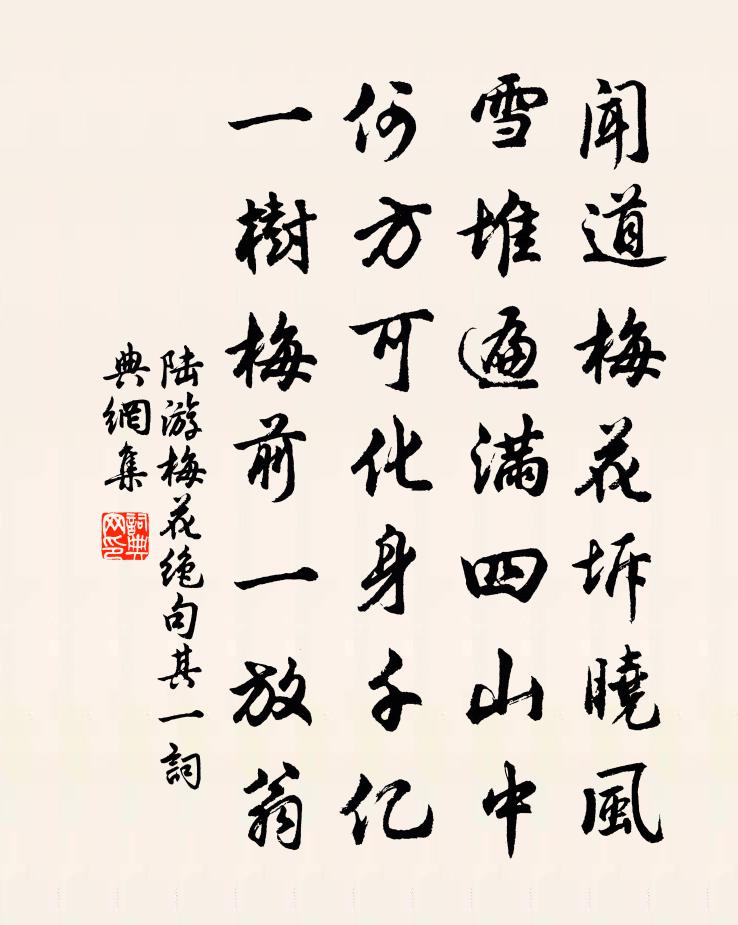 聞道梅花坼曉風
雪堆遍滿四山中
何方可化身千亿
一樹梅前一放翁
陸游梅花绝句其一詞
典網集
詞典网印